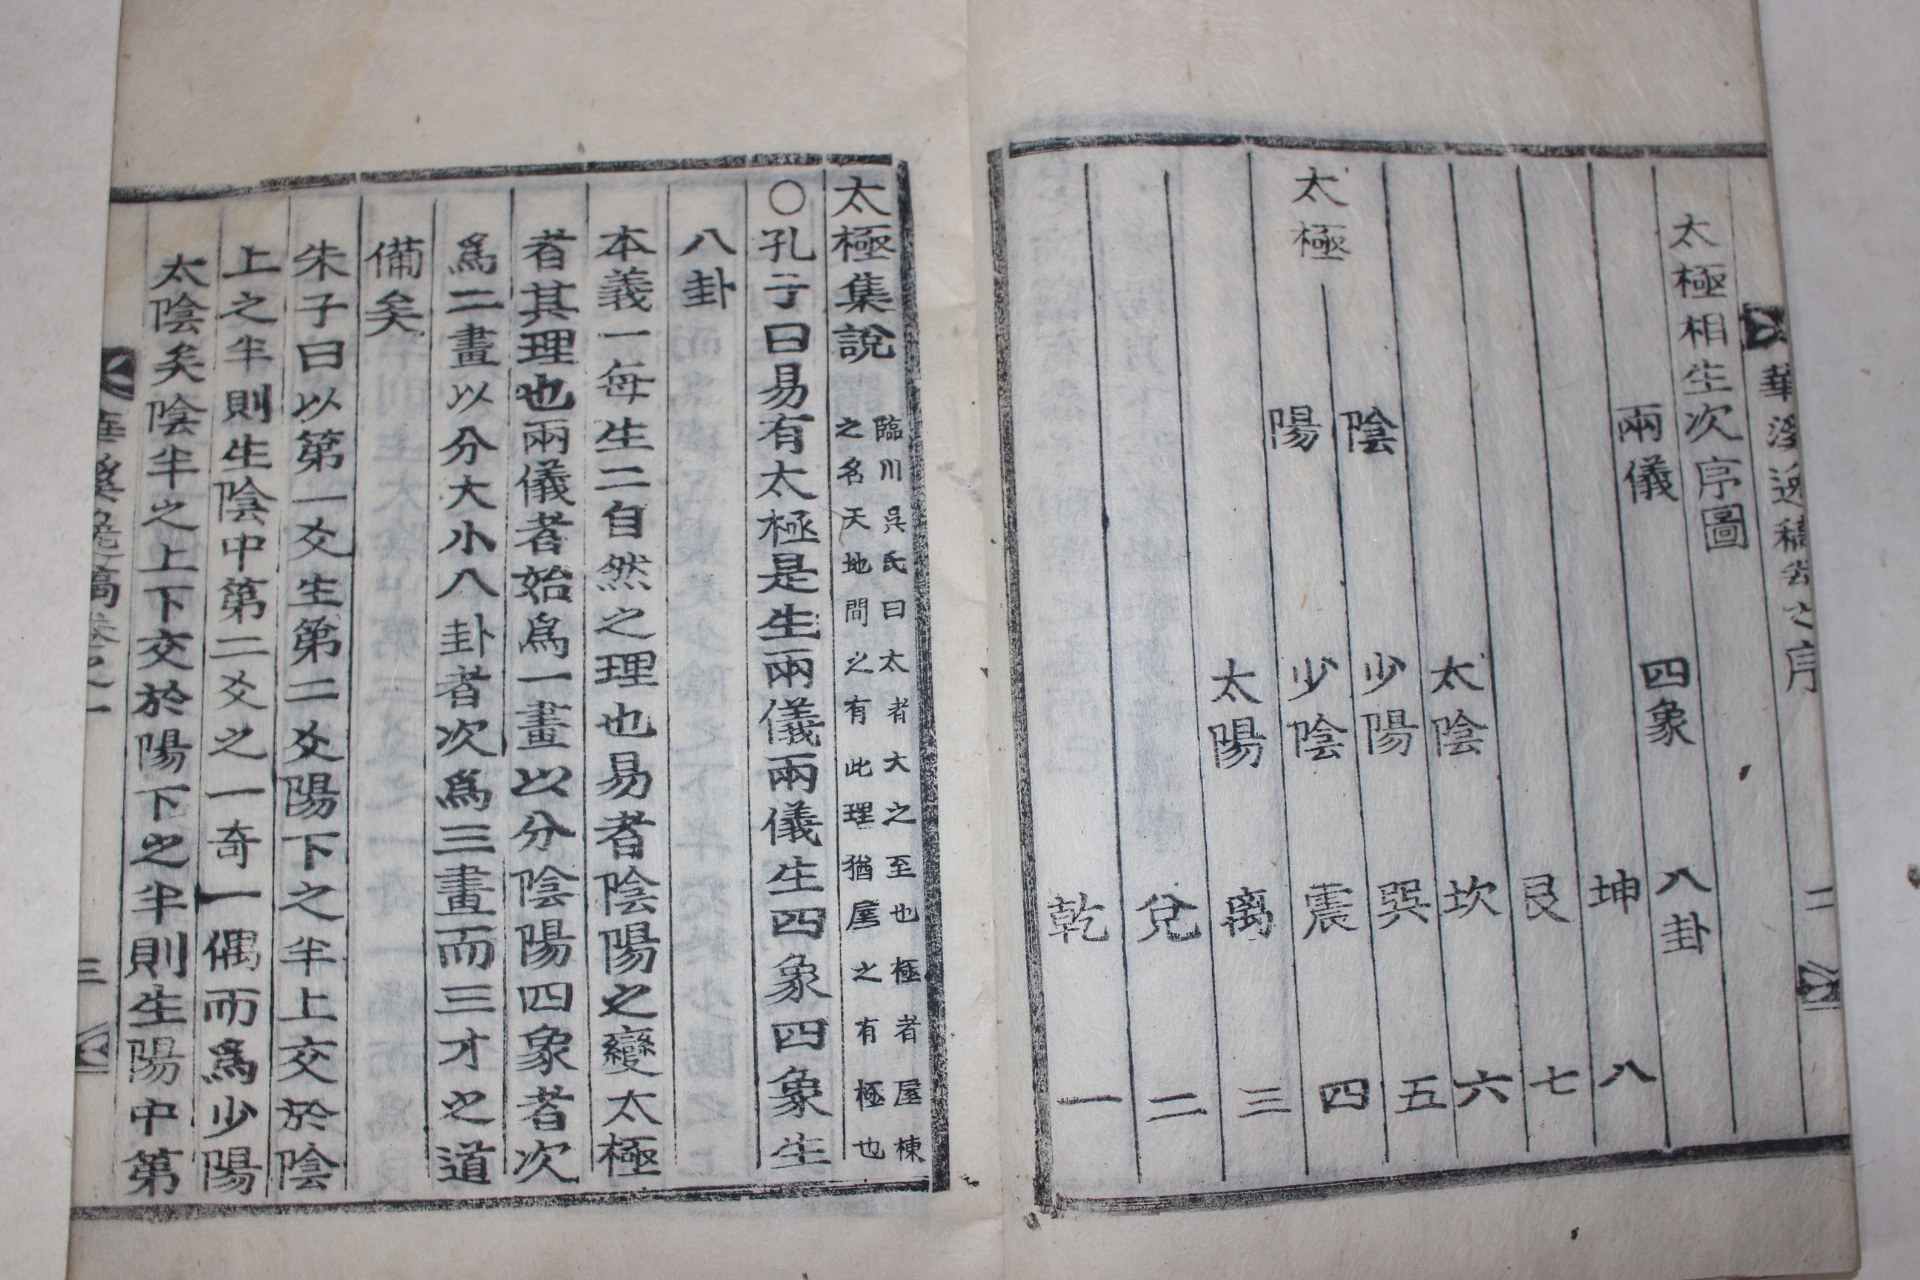 華溪逸稿卷之序 二
太極相生次序圖
兩儀 四象 八卦
坤 八
艮 七
太陰 坎 六
陰 少陽 巽 五
太極 陽 少陰 震 四
太陽 离 三
兌 二
乾 一
太極集說
臨川吳氏曰太者大之至也極者屋棟
之名天地問之有此理猶屋之有極也
○孔子曰易有太極是生兩儀兩儀生四象四象生
八卦
本義一每生二自然之理也易者陰陽之變太極
者其理也兩儀者始爲一畫以分陰陽四象者次
爲二畫以分大小八卦者次爲三畫而三才之道
備矣
朱子曰以第一爻生第二爻陽下之半上交於陰
上之半則生陰中第二爻之一奇一偶而爲少陽
太陰矣陰半之上下交於陽下之半則生陽中第
華溪逸稿卷之一 三